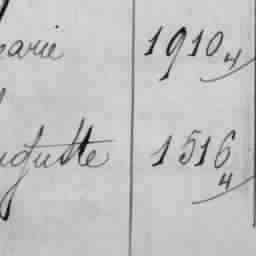 arie 1910 4
ugutte 1516 4